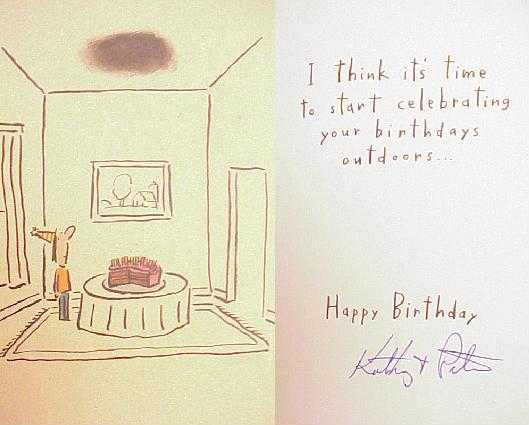 I think it's time
to start celebrating
your birthdays
outdoors...
Happy Birthday
Kathy + Peter